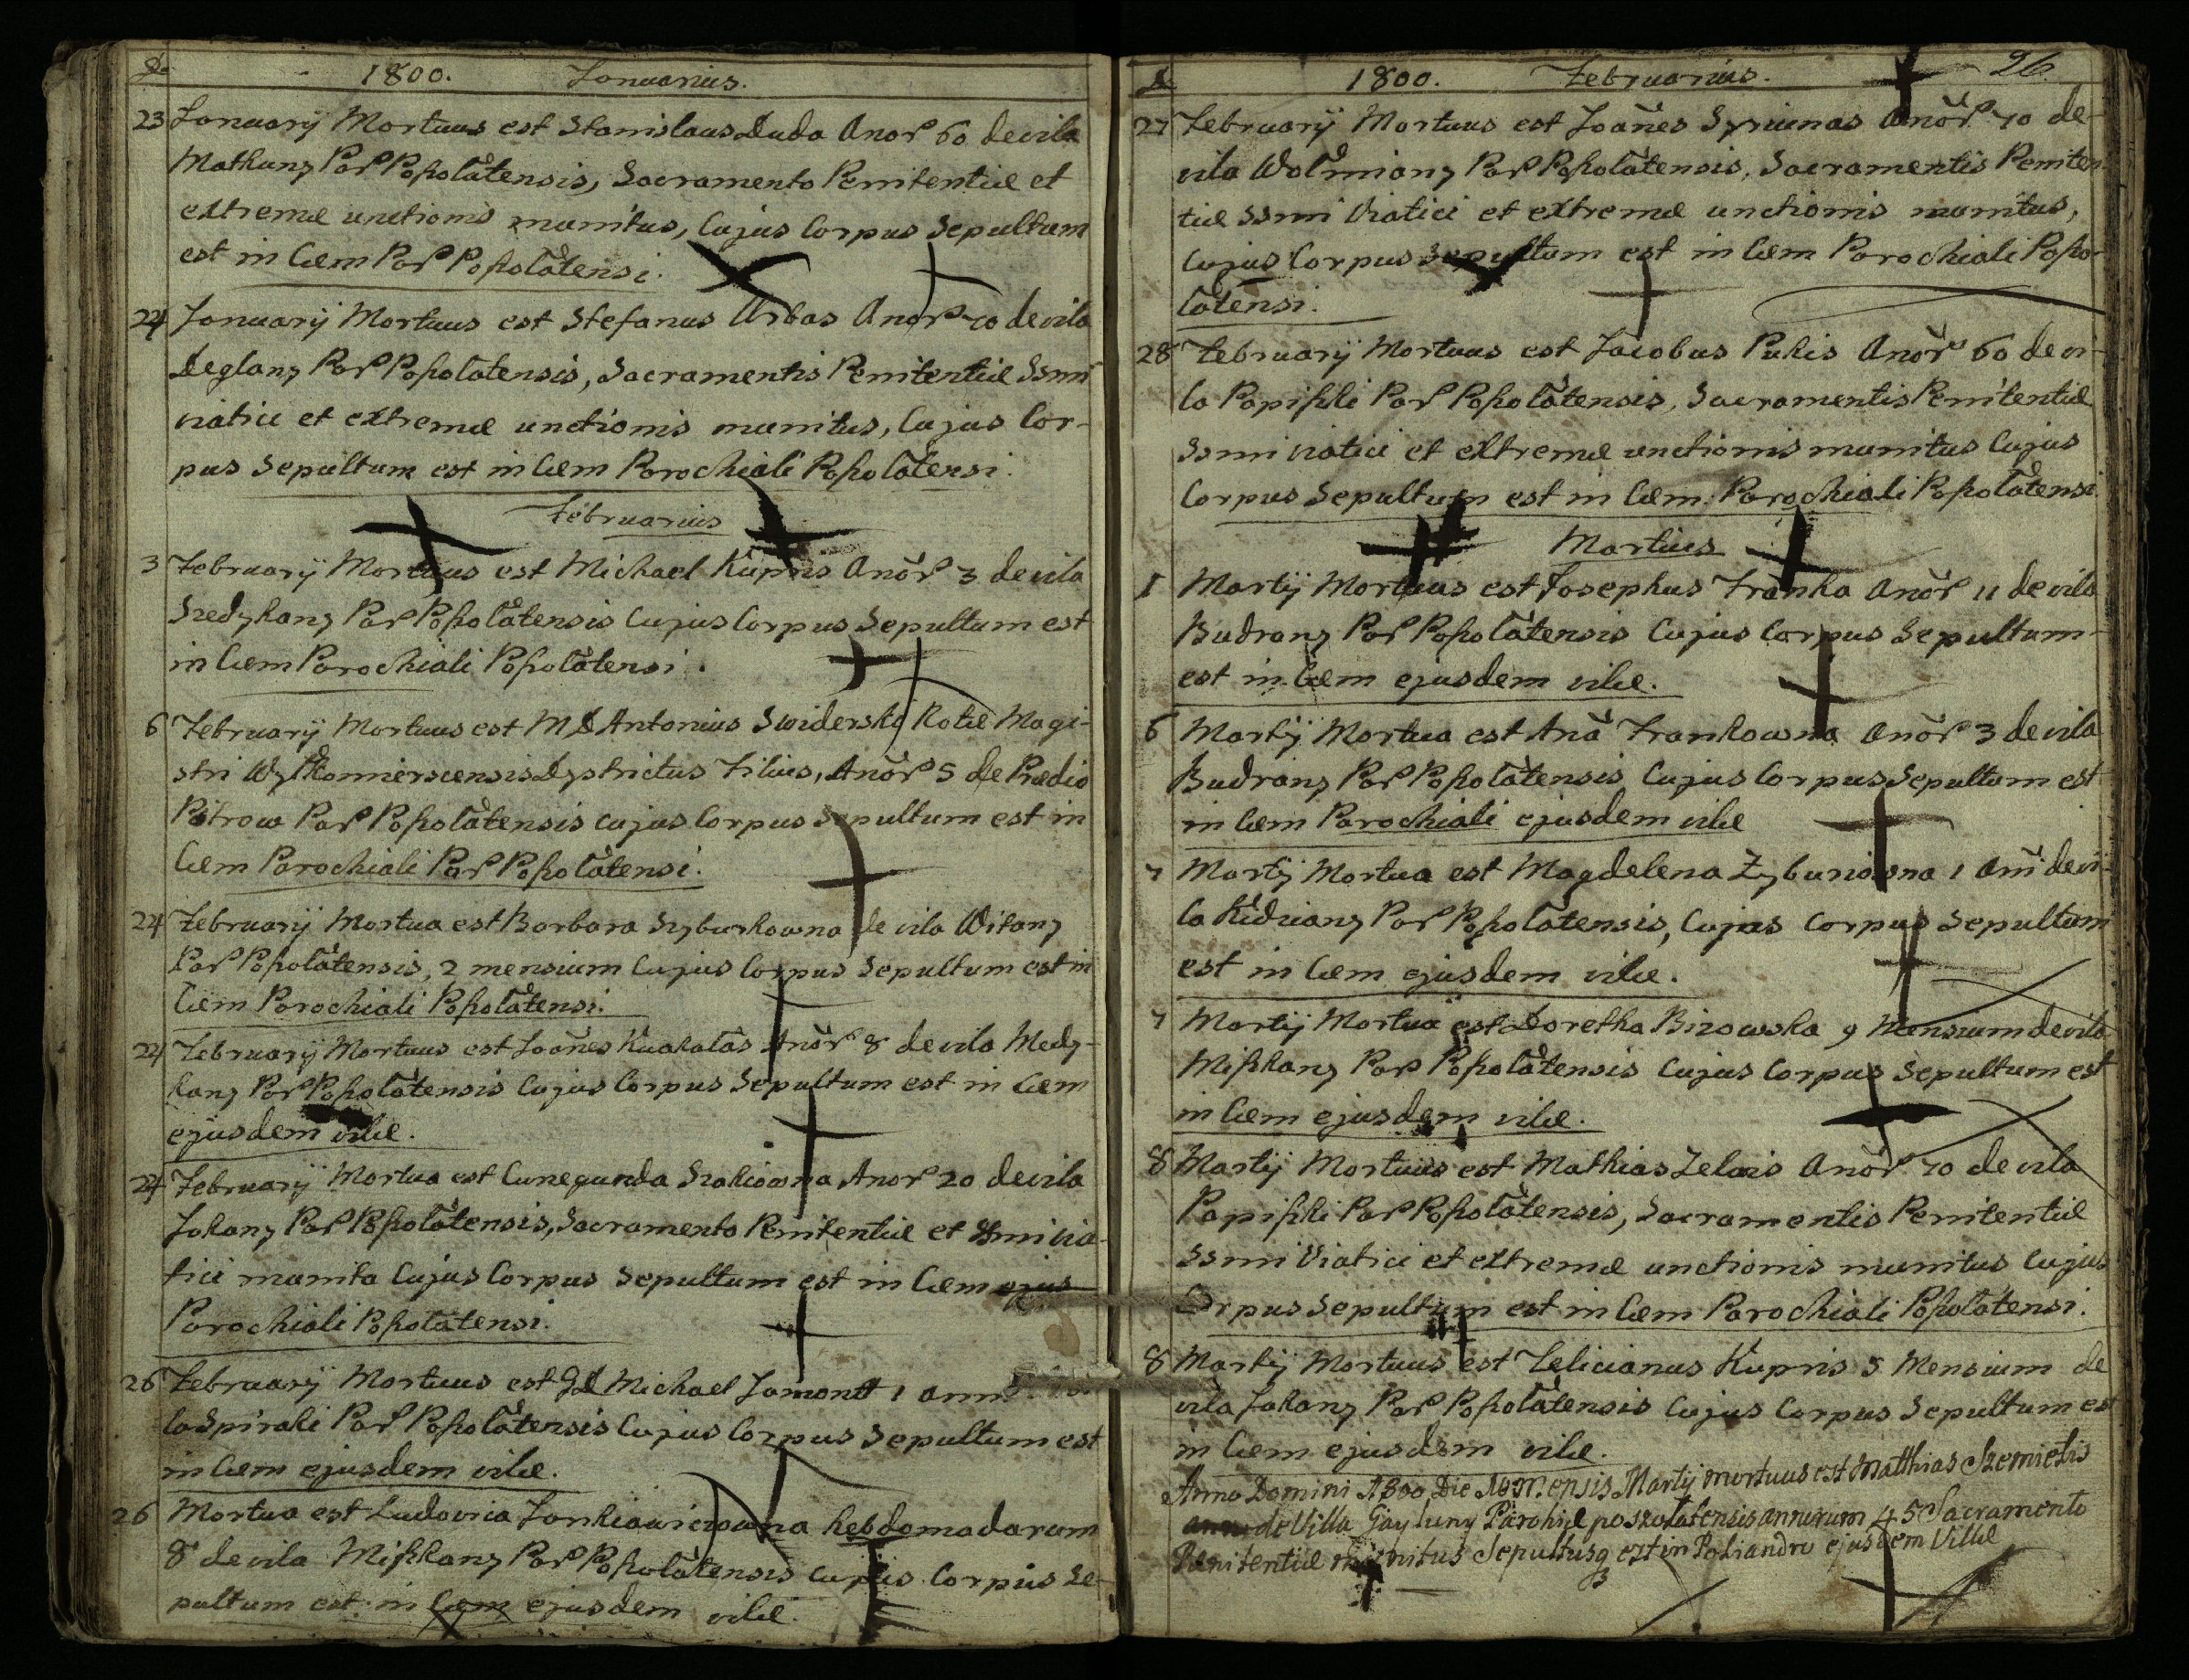 D.
1800. Januarius.
23 Januarij Mortuus est Stanislaus Duda Anor 60 de vila
Mathuny Par Poszołatensis, Sacramento Penitentiæ et
extremæ unctionis munitus, Cujus Corpus Sepultum
est in Cæm Par Poszołatensi.
24 Januarij Mortuus est Stefanus Urbas Anor 70 de vila
Deglany Par Poszołatensis, Sacramentis Penitentiæ SSmi
viatici et extremæ unctionis munitus, Cujus Cor-
pus Sepultum est in Cæm Parochiali Poszołatensi.
Februarius
3 Februarij Mortuus est Michael Kupris Anor 3 de vila
Szedykany Par Poszołatensis Cujus Corpus Sepultum est
in Cæm Parochiali Poszołatensi.
6 Februarij Mortuus est MD Antonius Swiderski Rotæ Magi-
stri Wyłkomiersensis Dystrictus Filius, Anor 5 de Prædio
Pitrow Par Poszołatensis cujus Corpus Sepultum est in
Cæm Parochiali Par Poszołatensi.
24 Februarij Mortua est Barbara Szyburkowna de vila Witany
Par Poszołatensis, 2 mensium Cujus Corpus Sepultum est in
Cæm Parochiali Poszołatensi.
24 Februarij Mortuus est Joañes Kuakałas Anor 8 de vila Medy-
kany Par Poszołatensis Cujus Corpus Sepultum est in Cæm
ejusdem vilæ.
24 Februarij Mortua est Cunegunda Szakiowna Anor 20 de vila
Jakany Par Poszołatensis, Sacramento Penitentiæ et SSmi via-
tici munita Cujus Corpus Sepultum est in Cæm ejus
Parochiali Poszołatensi.
26 Februarij Mortuus est GD Michael Jamontt 1 anni
la Spiraki Par Poszołatensis Cujus Corpus Sepultum est
in Cæm ejusdem vilæ.
26 Mortua est Ludovica Jankiawiczowna hebdomadarum
8 de vila Miszkany Par Poszołatensis cujus Corpus Se-
pultum est in Cæm ejusdem vilæ.
D
1800. Februarius. 26.
27 Februarij Mortuus est Joañes Syrunas Anor 70 de
vila Wołmiany Par Poszołatensis, Sacramentis Peniten
tiæ SSmi Viatici et extremæ unctionis munitus,
Cujus Corpus Sepultum est in Cæm Parochiali Poszo-
łatensi.
28 Februarij Mortuus est Jacobus Pukis Anor 60 de vi-
la Papiszki Par Poszołatensis, Sacramentis Penitentiæ
SSmi viatici et extremæ unctionis munitus Cujus
Corpus Sepultum est in Cæm Parochiali Poszołatensi
Martius
1 Martij Mortuus est Josephus Franka Anor 11 de vila
Budrany Par Poszołatensis Cujus Corpus Sepultum
est in Cæm ejusdem vilæ.
6 Martij Mortua est Ana Frankowna Anor 3 de vila
Budrany Par Poszołatensis Cujus Corpus Sepultum est
in Cæm Parochiali ejusdem vilæ
7 Martij Mortua est Magdelena Zyburiowna 1 Ani de vi-
la Kidziany Par Poszołatensis, Cujus Corpus Sepultum
est in Cæm ejusdem vilæ.
7 Martij Mortua est Dorotha Bizowska 9 Mensium de vila
Miszkany Par Poszołatensis Cujus Corpus Sepultum est
in Cæm ejusdem vilæ.
8 Martij Mortuus est Mathias Zelwis Anor 70 de vila
Papiszki Par Poszołatensis, Sacramentis Penitentiæ
SSmi Viatici et extremæ unctionis munitus Cujus
Corpus Sepultum est in Cæm Parochiali Poszołatensi.
8 Martij Mortuus est Felicianus Kupris 5 Mensium de
vila Jakany Par Poszołatensis Cujus Corpus Sepultum est
in Cæm ejusdem vilæ.
Anno Domini 1800 Die Mensis Martij mortuus est Matthias Szemietis
de Villa Gayluny Parohiæ poszołatensis annorum 45 Sacramento
Penitentiæ munitus Sepultusq est in Poliandro ejusdem Villæ